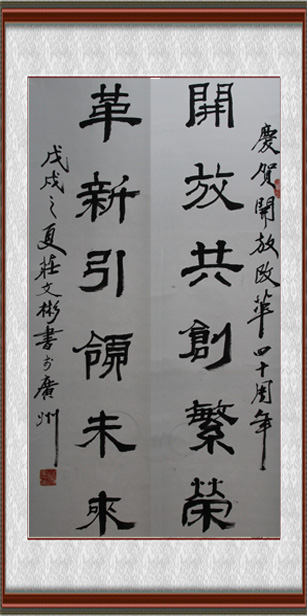 慶賀開放改革四十周年
開放共創繁榮
革新引領未來
戊戌之夏莊文彬書於廣州